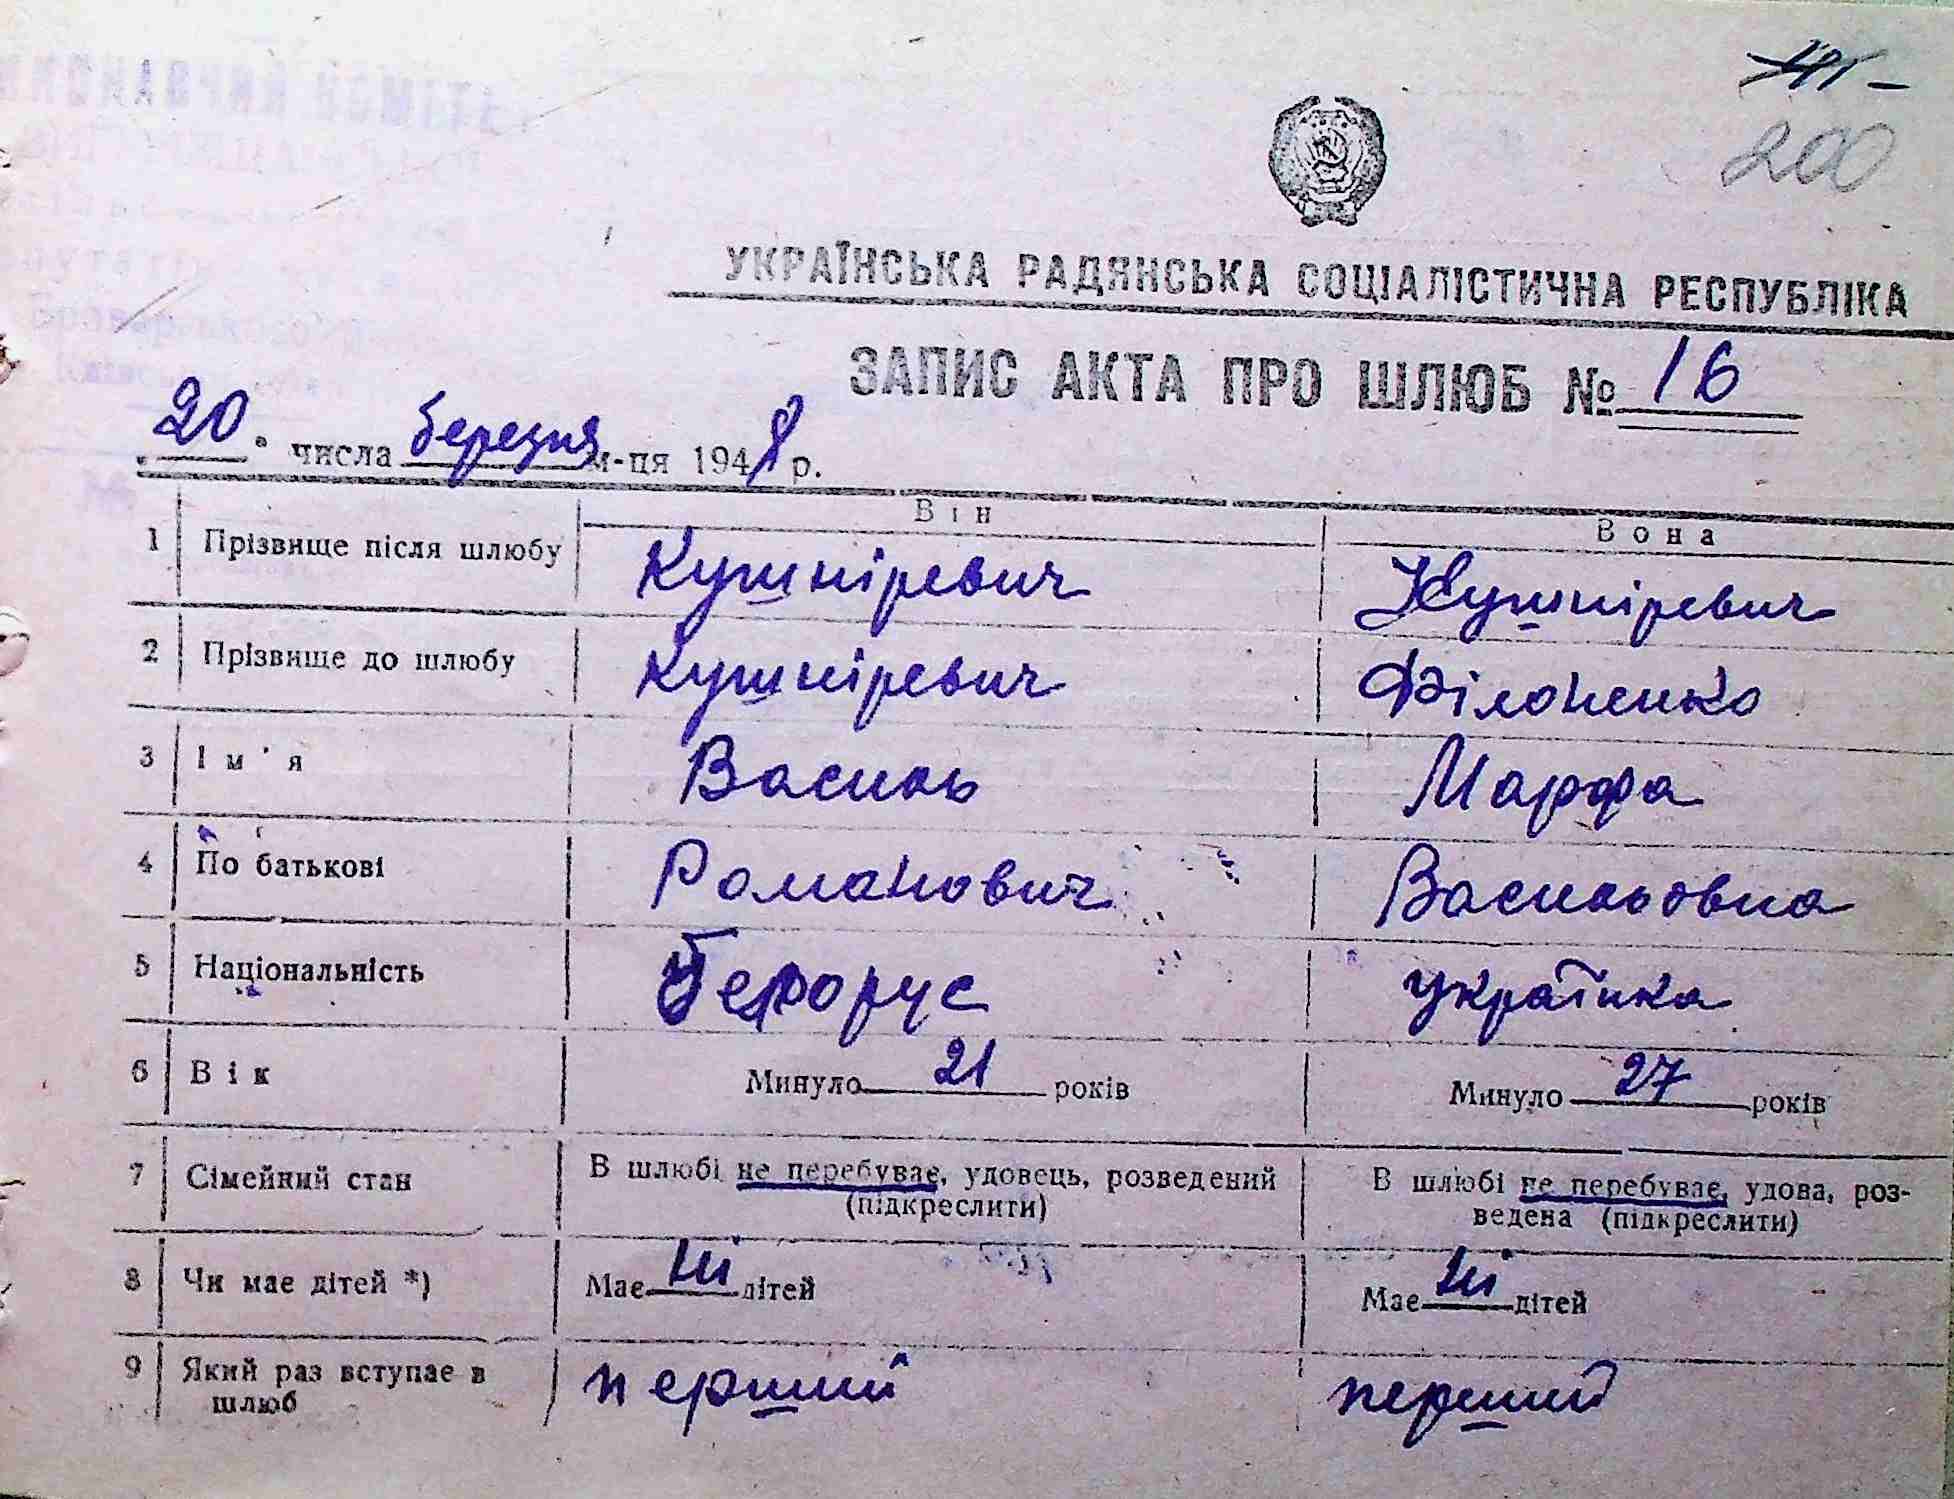 виконавчий коміте
Броварського
200
УКРАЇНСЬКА РАДЯНСЬКА СОЦІАЛІСТИЧНА РЕСПУБЛІКА
ЗАПИС АКТА ПРО ШЛЮБ № 16
20 числа березня м-ця 1948 р.
Він Вона
1 Прізвище після шлюбу Кушніревич Кушніревич
2 Прізвище до шлюбу Кушніревич Філоненко
3 Ім'я Василь Марфа
4 По батькові Романович Васильовна
5 Національність Білорус українка
6 Вік Минуло 21 років Минуло 27 років
7 Сімейний стан В шлюбі не перебуває, удовець, розведений В шлюбі не перебуває, удова, роз-
(підкреслити) ведена (підкреслити)
8 Чи має дітей *) Має ні дітей Має ні дітей
9 Який раз вступає в перший перший
шлюб